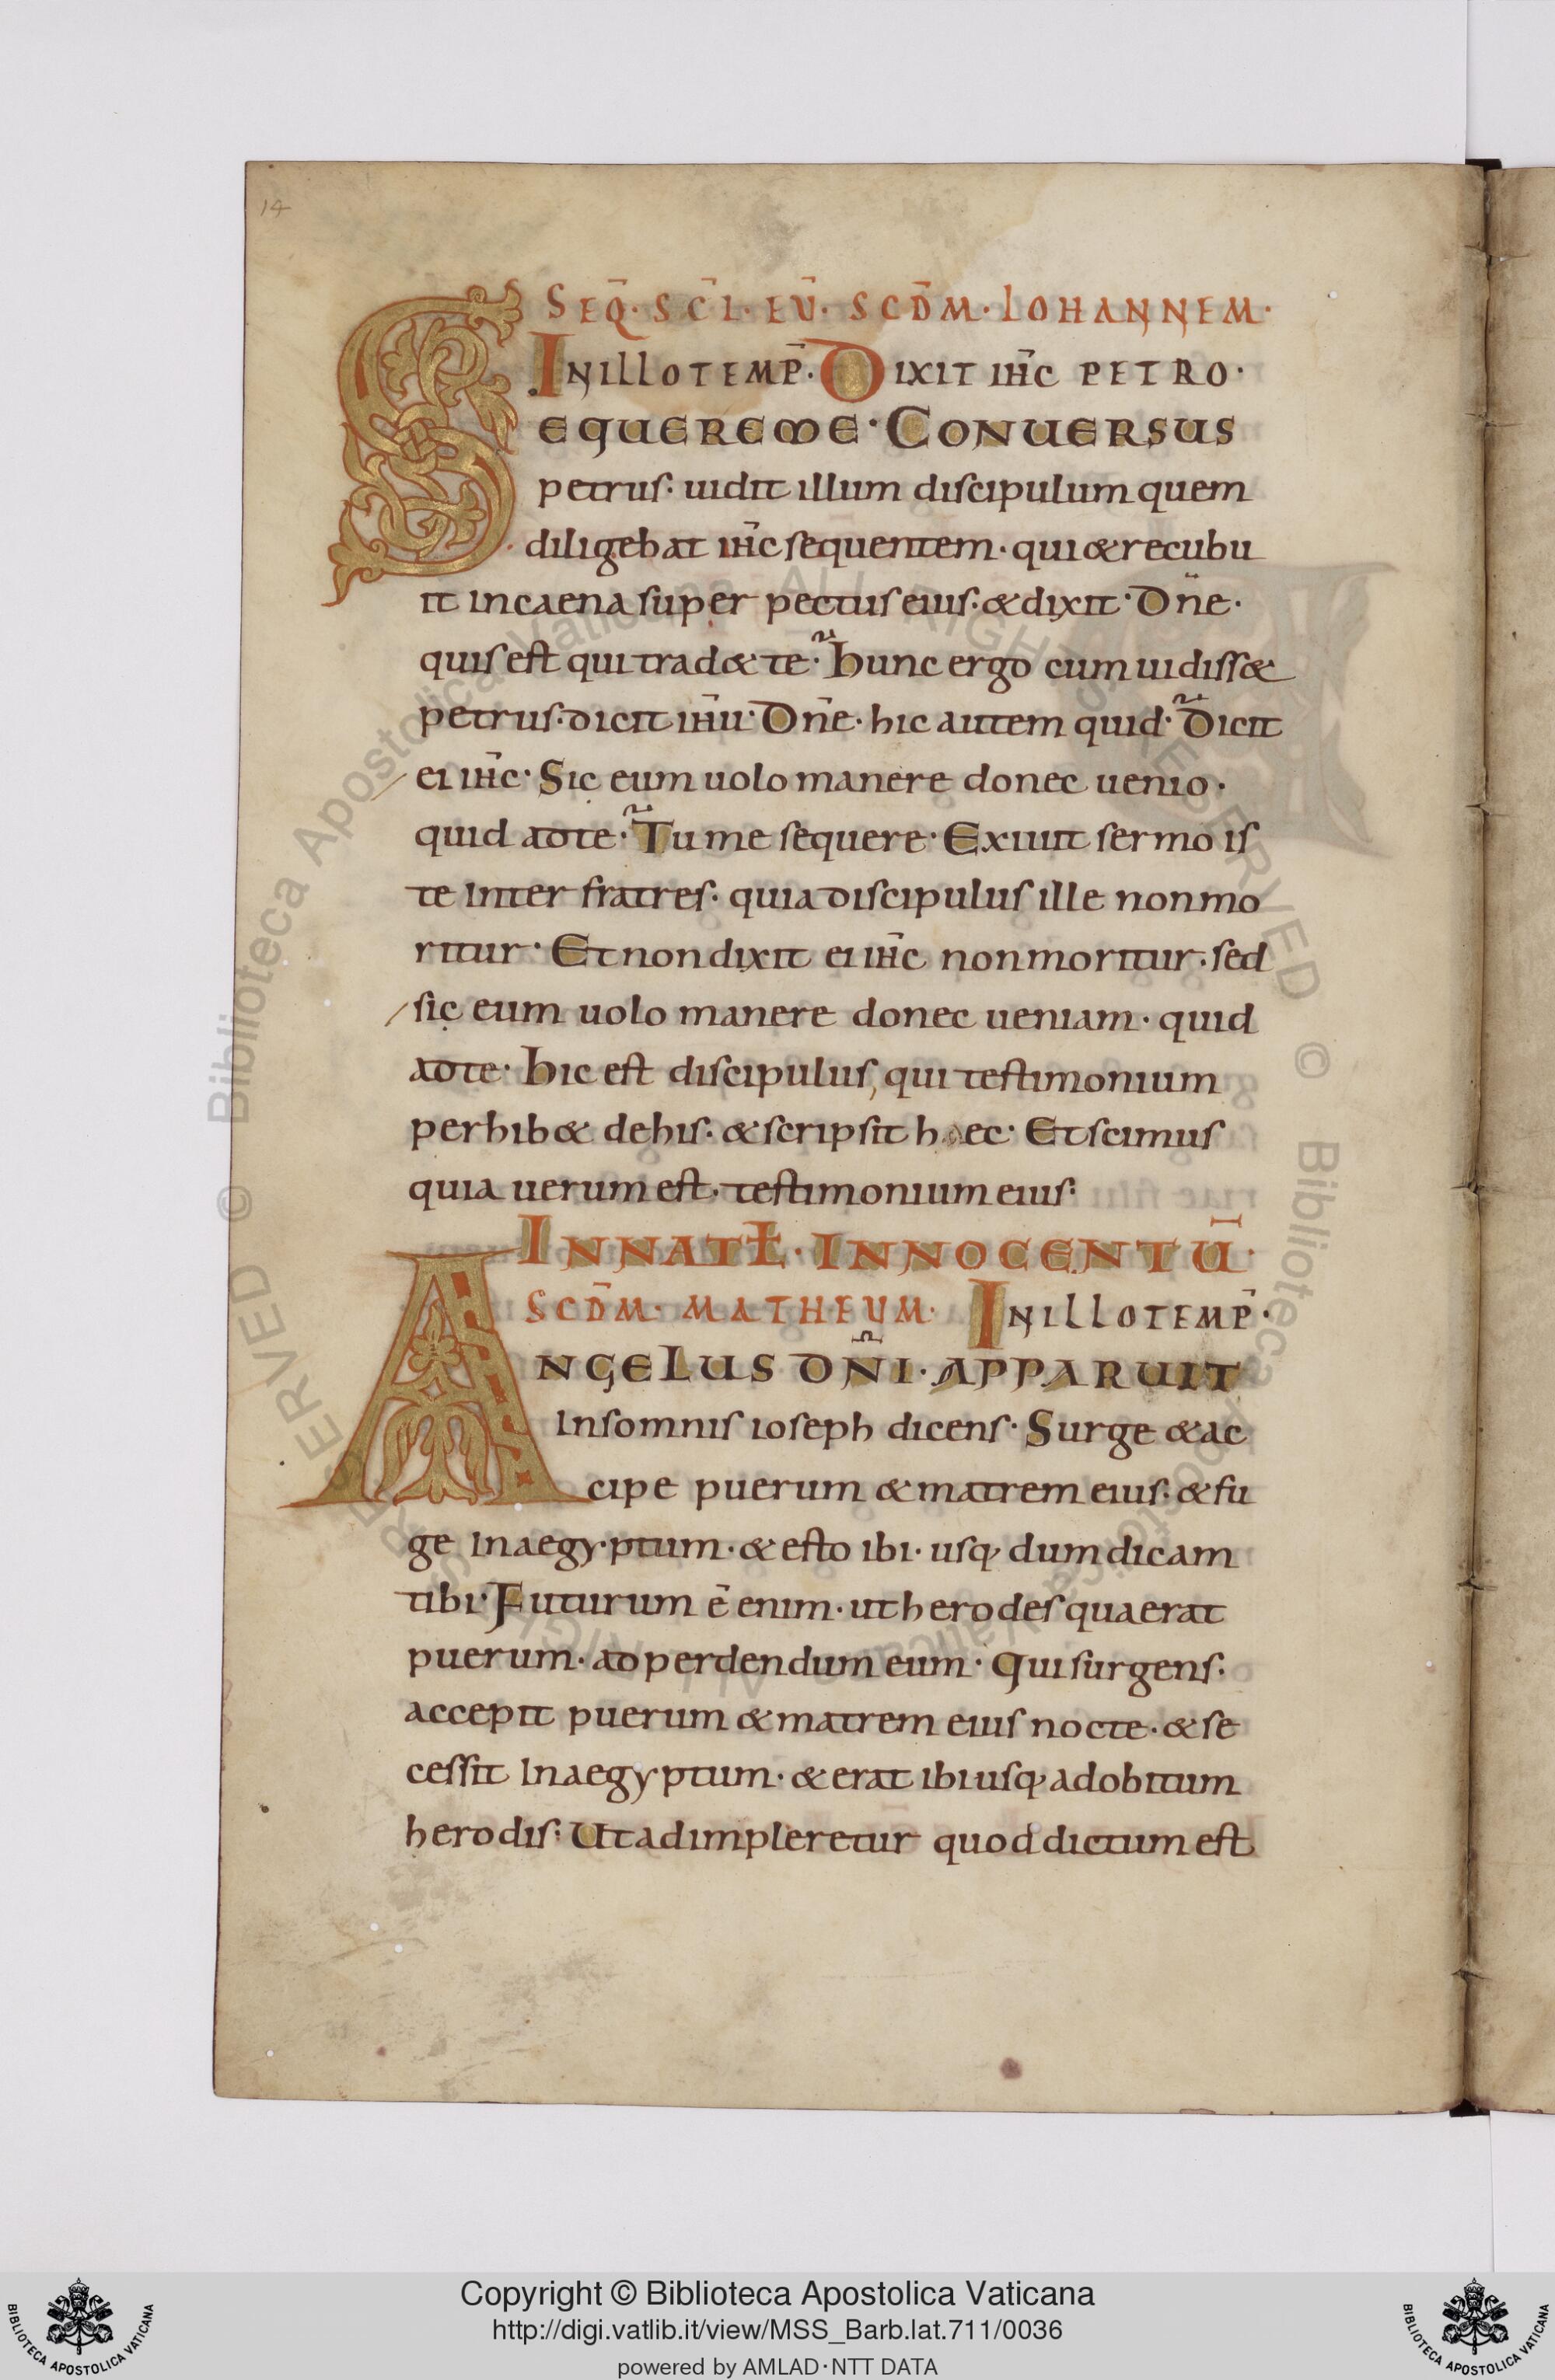 14
SEQ̄· SC̄I· EV̄· SCD̄M· IOHANNEM·
IN ILLO TEMP̄· DIXIT IH̄C PETRO·
SEQUERE ME· CONUERSUS
petrus· uidit illum discipulum quem
diligebat ih̄c sequentem· qui & recubu
it in caena super pectus eius· & dixit· Dn̄e·
quis est qui trad& te· hunc ergo cum uidiss&
petrus· dicit ih̄u· Dn̄e· hic autem quid· Dicit
ei ih̄c· Sic eum uolo manere donec uenio·
quid ad te· Tu me sequere· Exiuit sermo is
te inter fratres· quia discipulus ille non mo
ritur· Et non dixit ei ih̄c non moritur· sed
sic eum uolo manere donec ueniam· quid
ad te· hic est discipulus, qui testimonium
perhib& de his· & scripsit haec· Et scimus
quia uerum est· testimonium eius:
IN NAT̄L· INNOCENTŪ·
SCD̄M· MATHEUM· IN ILLO TEMP̄·
ANGELUS DN̄I· APPARUIT
in somnis ioseph dicens· Surge & ac
cipe puerum & matrem eius: & fu
ge in aegyptum· & esto ibi· usq; dum dicam
tibi· Futurum ē enim· ut herodes quaerat
puerum· ad perdendum eum· Qui surgens·
accepit puerum & matrem eius nocte· & se
cessit in aegyptum· & erat ibi usq; ad obitum
herodis: Ut adimpleretur quod dictum est
© Biblioteca Apostolica Vaticana ALL RIGHTS RESERVED
Copyright © Biblioteca Apostolica Vaticana
http://digi.vatlib.it/view/MSS_Barb.lat.711/0036
powered by AMLAD·NTT DATA
BIBLIOTECA APOSTOLICA VATICANA
BIBLIOTECA APOSTOLICA VATICANA